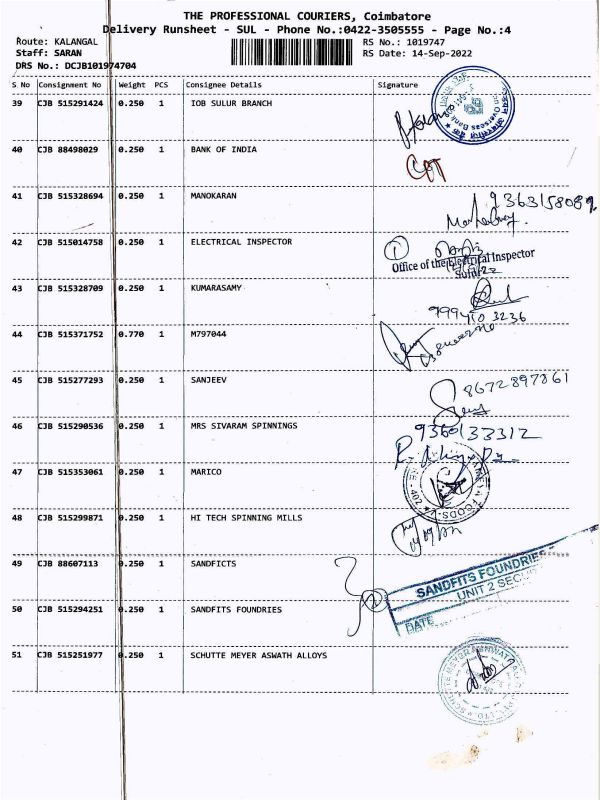 THE PROFESSIONAL COURIERS, Coimbatore
Delivery Runsheet - SUL - Phone No.:0422-3505555 - Page No.:4
Route: KALANGAL RS No.: 1019747
Staff: SARAN RS Date: 14-Sep-2022
DRS No.: DCJB101974704
S No Consignment No Weight PCS Consignee Details Signature
39 CJB 515291424 0.250 1 IOB SULUR BRANCH
40 CJB 88498029 0.250 1 BANK OF INDIA
41 CJB 515328694 0.250 1 MANOKARAN
9363158089
42 CJB 515014758 0.250 1 ELECTRICAL INSPECTOR
1
Office of the Electrical Inspector
Sulur
43 CJB 515328709 0.250 1 KUMARASAMY
3236
44 CJB 515371752 0.770 1 M797044
45 CJB 515277293 0.250 1 SANJEEV
8672897861
46 CJB 515290536 0.250 1 MRS SIVARAM SPINNINGS
9360133312
47 CJB 515353061 0.250 1 MARICO
FOODS
48 CJB 515299871 0.250 1 HI TECH SPINNING MILLS
49 CJB 88607113 0.250 1 SANDFICTS
SANDFITS FOUNDRIES
UNIT 2
50 CJB 515294251 0.250 1 SANDFITS FOUNDRIES
2
DATE
51 CJB 515251977 0.250 1 SCHUTTE MEYER ASWATH ALLOYS